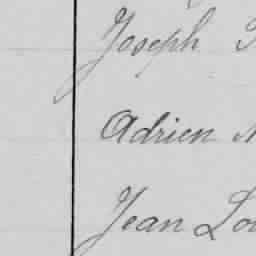 Joseph
Adrien
Jean Lou